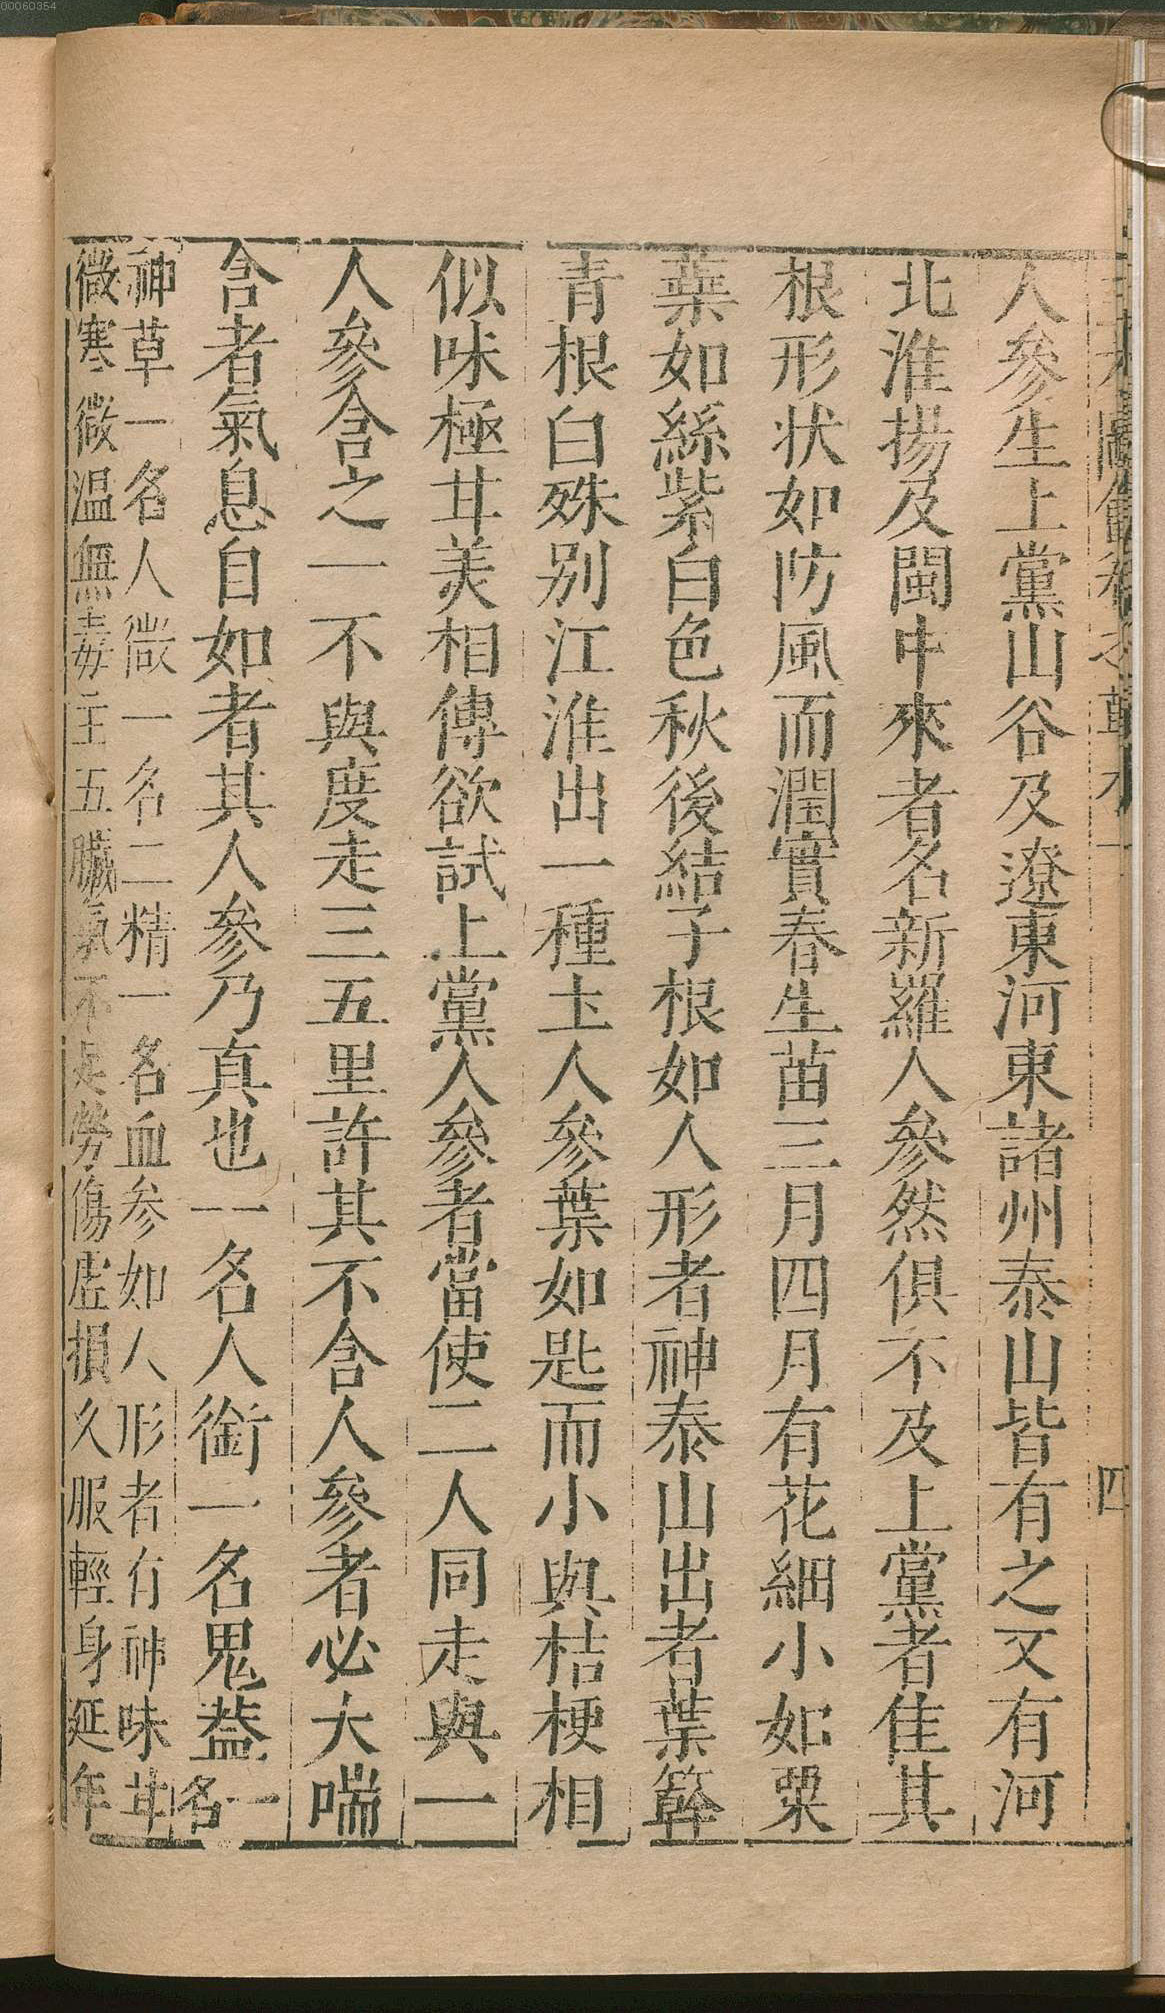 00060354
人參生上黨山谷及遼東河東諸州泰山皆有之又有河
北淮揚及閩中來者名新羅人參然俱不及上黨者佳其
根形状如防風而潤實春生苗三月四月有花細小如粟
蘂如絲紫白色秋後結子根如人形者神泰山出者葉簳
青根白殊别江淮出一種土人參葉如匙而小與桔梗相
似味極甘美相傳欲試上黨人參者當使二人同走與一
人參含之一不與度走三五里許其不含人參者必大喘
含者氣息自如者其人參乃真也一名人銜一名鬼蓋一名
神草一名人微一名二精一名血参如人形者有神味甘
微寒微温無毒主五臟氣不足勞傷虛損久服輕身延年
四